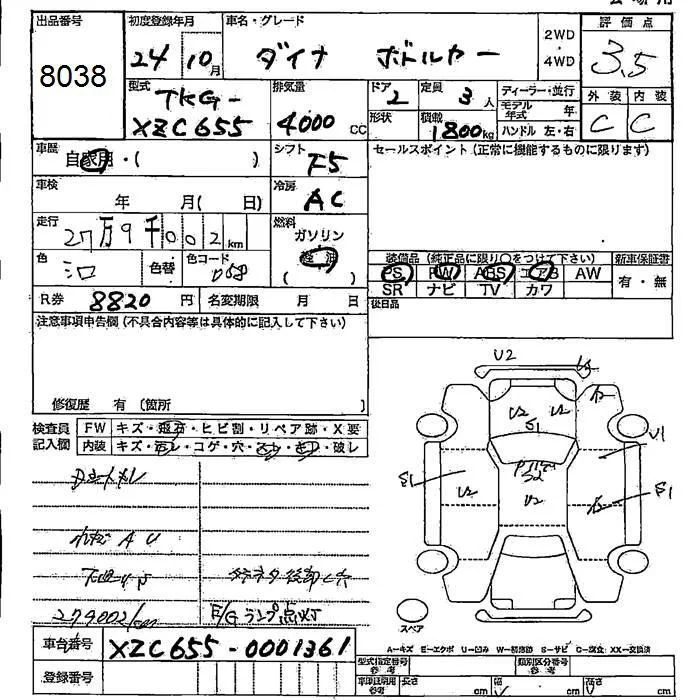 出品番号 初度登録年月 車名・グレード 2WD・4WD 評価点
8038 24 10月 ダイナ ボトルカー 3.5
型式 排気量 ドア 定員 ディーラー・並行 外装 内装
TKG-XZC655 4000cc 2 3人 モデル年式 年 C C
形状 積載 1800kg ハンドル 左・右
車歴 自家用・( ) シフト F5 セールスポイント(正常に機能するものに限ります)
車検 年 月( 日) 冷房 AC
走行 27万9千002km 燃料 ガソリン 軽油 ( )
色 色替 色コード 058
装備品(純正品に限り○をつけて下さい) 新車保証書
PS PW ABS エアB AW 有・無
SR ナビ TV カワ
R券 8820円 名変期限 月 日 後日品
注意事項申告欄(不具合内容等は具体的に記入して下さい)
修復歴 有(箇所 )
検査員記入欄 FW キズ・飛石・ヒビ割・リペア跡・X要
内装 キズ・汚レ・コゲ・穴・スレ・切レ・破レ
U2
U2 U2
S1
U1
S1 U2 U2 S1
279002km E/Gランプ点灯
スペア
A−キズ E−エクボ U−凹み W−補修跡 S−サビ C−腐食 XX−交換済
車台番号 XZC655-0001361
登録番号
型式指定番号 参考 類別区分番号 参考
車検証用 参考 長さ cm 幅 cm 高さ cm